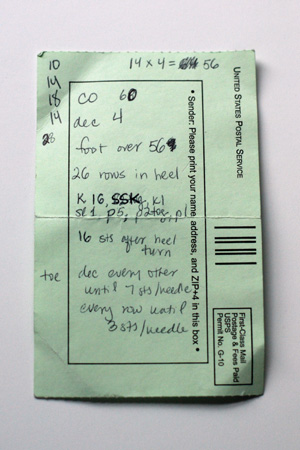 10
14
18
14
28
14 x 4 = 56
CO 60
dec 4
foot over 56
26 rows in heel
K 16, SSK, K1
sl 1, p5, p2tog, p1
16 sts after heel
turn
toe
dec every other
until 7 sts/needle
every row until
3 sts/needle
UNITED STATES POSTAL SERVICE
• Sender: Please print your name, address, and ZIP+4 in this box •
First-Class Mail
Postage & Fees Paid
USPS
Permit No. G-10